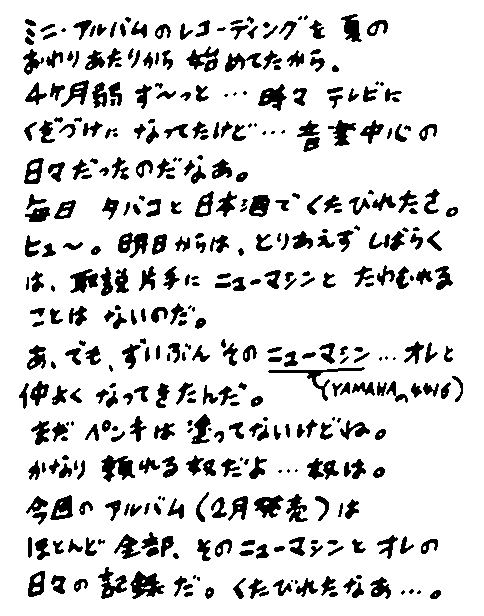 ミニ・アルバムのレコーディングを 夏の
おわりあたりから 始めてたから。
4ヶ月弱 ず〜っと … 時々 テレビに
くぎづけに なってたけど … 音楽中心の
日々だったのだなあ。
毎日 タバコと日本酒で くたびれたさ。
ヒュ〜。明日からは、とりあえず しばらく
は、取説片手に ニューマシンと たわむれる
ことは ないのだ。
あ、でも、ずいぶん そのニューマシン … オレと
仲よく なってきたんだ。 (YAMAHA 4416)
まだ ペンキは 塗ってないけどね。
かなり 頼れる 奴だよ … 奴は。
今回の アルバム (2月発売) は
ほとんど 全部、そのニューマシンと オレの
日々の 記録だ。くたびれたなあ…。